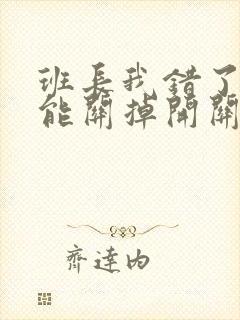 班長我錯了
能關掉開關
齊達内